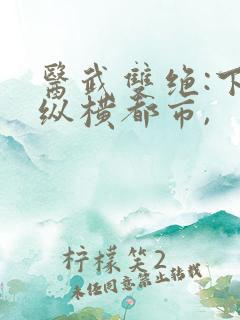 醫武雙绝:下
纵横都市,
柠檬笑2
未经同意禁止转载